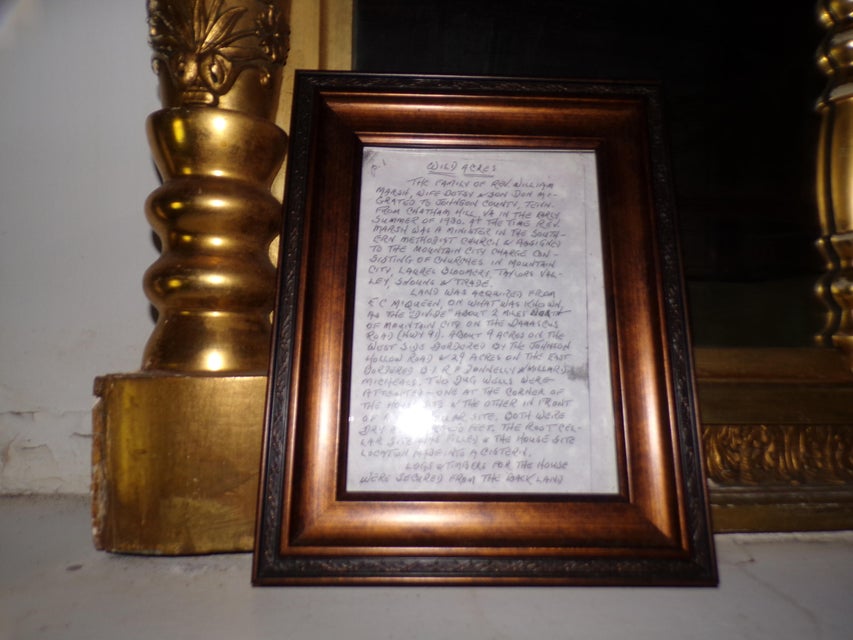 WILD ACRES
THE FAMILY OF REV. WILLIAM
MARSH, WIFE DOTSY & SON DON MI-
GRATED TO JOHNSON COUNTY, TENN.
FROM CHATHAM HILL, VA IN THE EARLY
SUMMER OF 1930. AT THE TIME REV.
MARSH WAS A MINISTER IN THE SOUTH-
ERN METHODIST CHURCH & ASSIGNED
TO THE MOUNTAIN CITY CHARGE CON-
SISTING OF CHURCHES IN MOUNTAIN
CITY, LAUREL BLOOMERY, TAYLORS VAL-
LEY, SHOUNS & TRADE.
LAND WAS ACQUIRED FROM
E C McQUEEN, ON WHAT WAS KNOWN
AS THE "DIVIDE" ABOUT 2 MILES NORTH
OF MOUNTAIN CITY ON THE DAMASCUS
ROAD (HWY 91). ABOUT 9 ACRES ON THE
WEST SIDE BORDERED BY THE JOHNSON
HOLLOW ROAD & 29 ACRES ON THE EAST
BORDERED BY R P DONNELLY & MALLARD
MICHEALS. TWO DUG WELLS WERE
ATTEMPTED - ONE AT THE CORNER OF
THE HOUSE & THE OTHER IN FRONT
OF SITE. BOTH WERE
DRY FEET. THE ROOT CEL-
LAR SITE WAS FILLED & THE HOUSE SITE
LOCATION MADE INTO A CISTERN.
LOGS & TIMBERS FOR THE HOUSE
WERE SECURED FROM THE BACK LAND